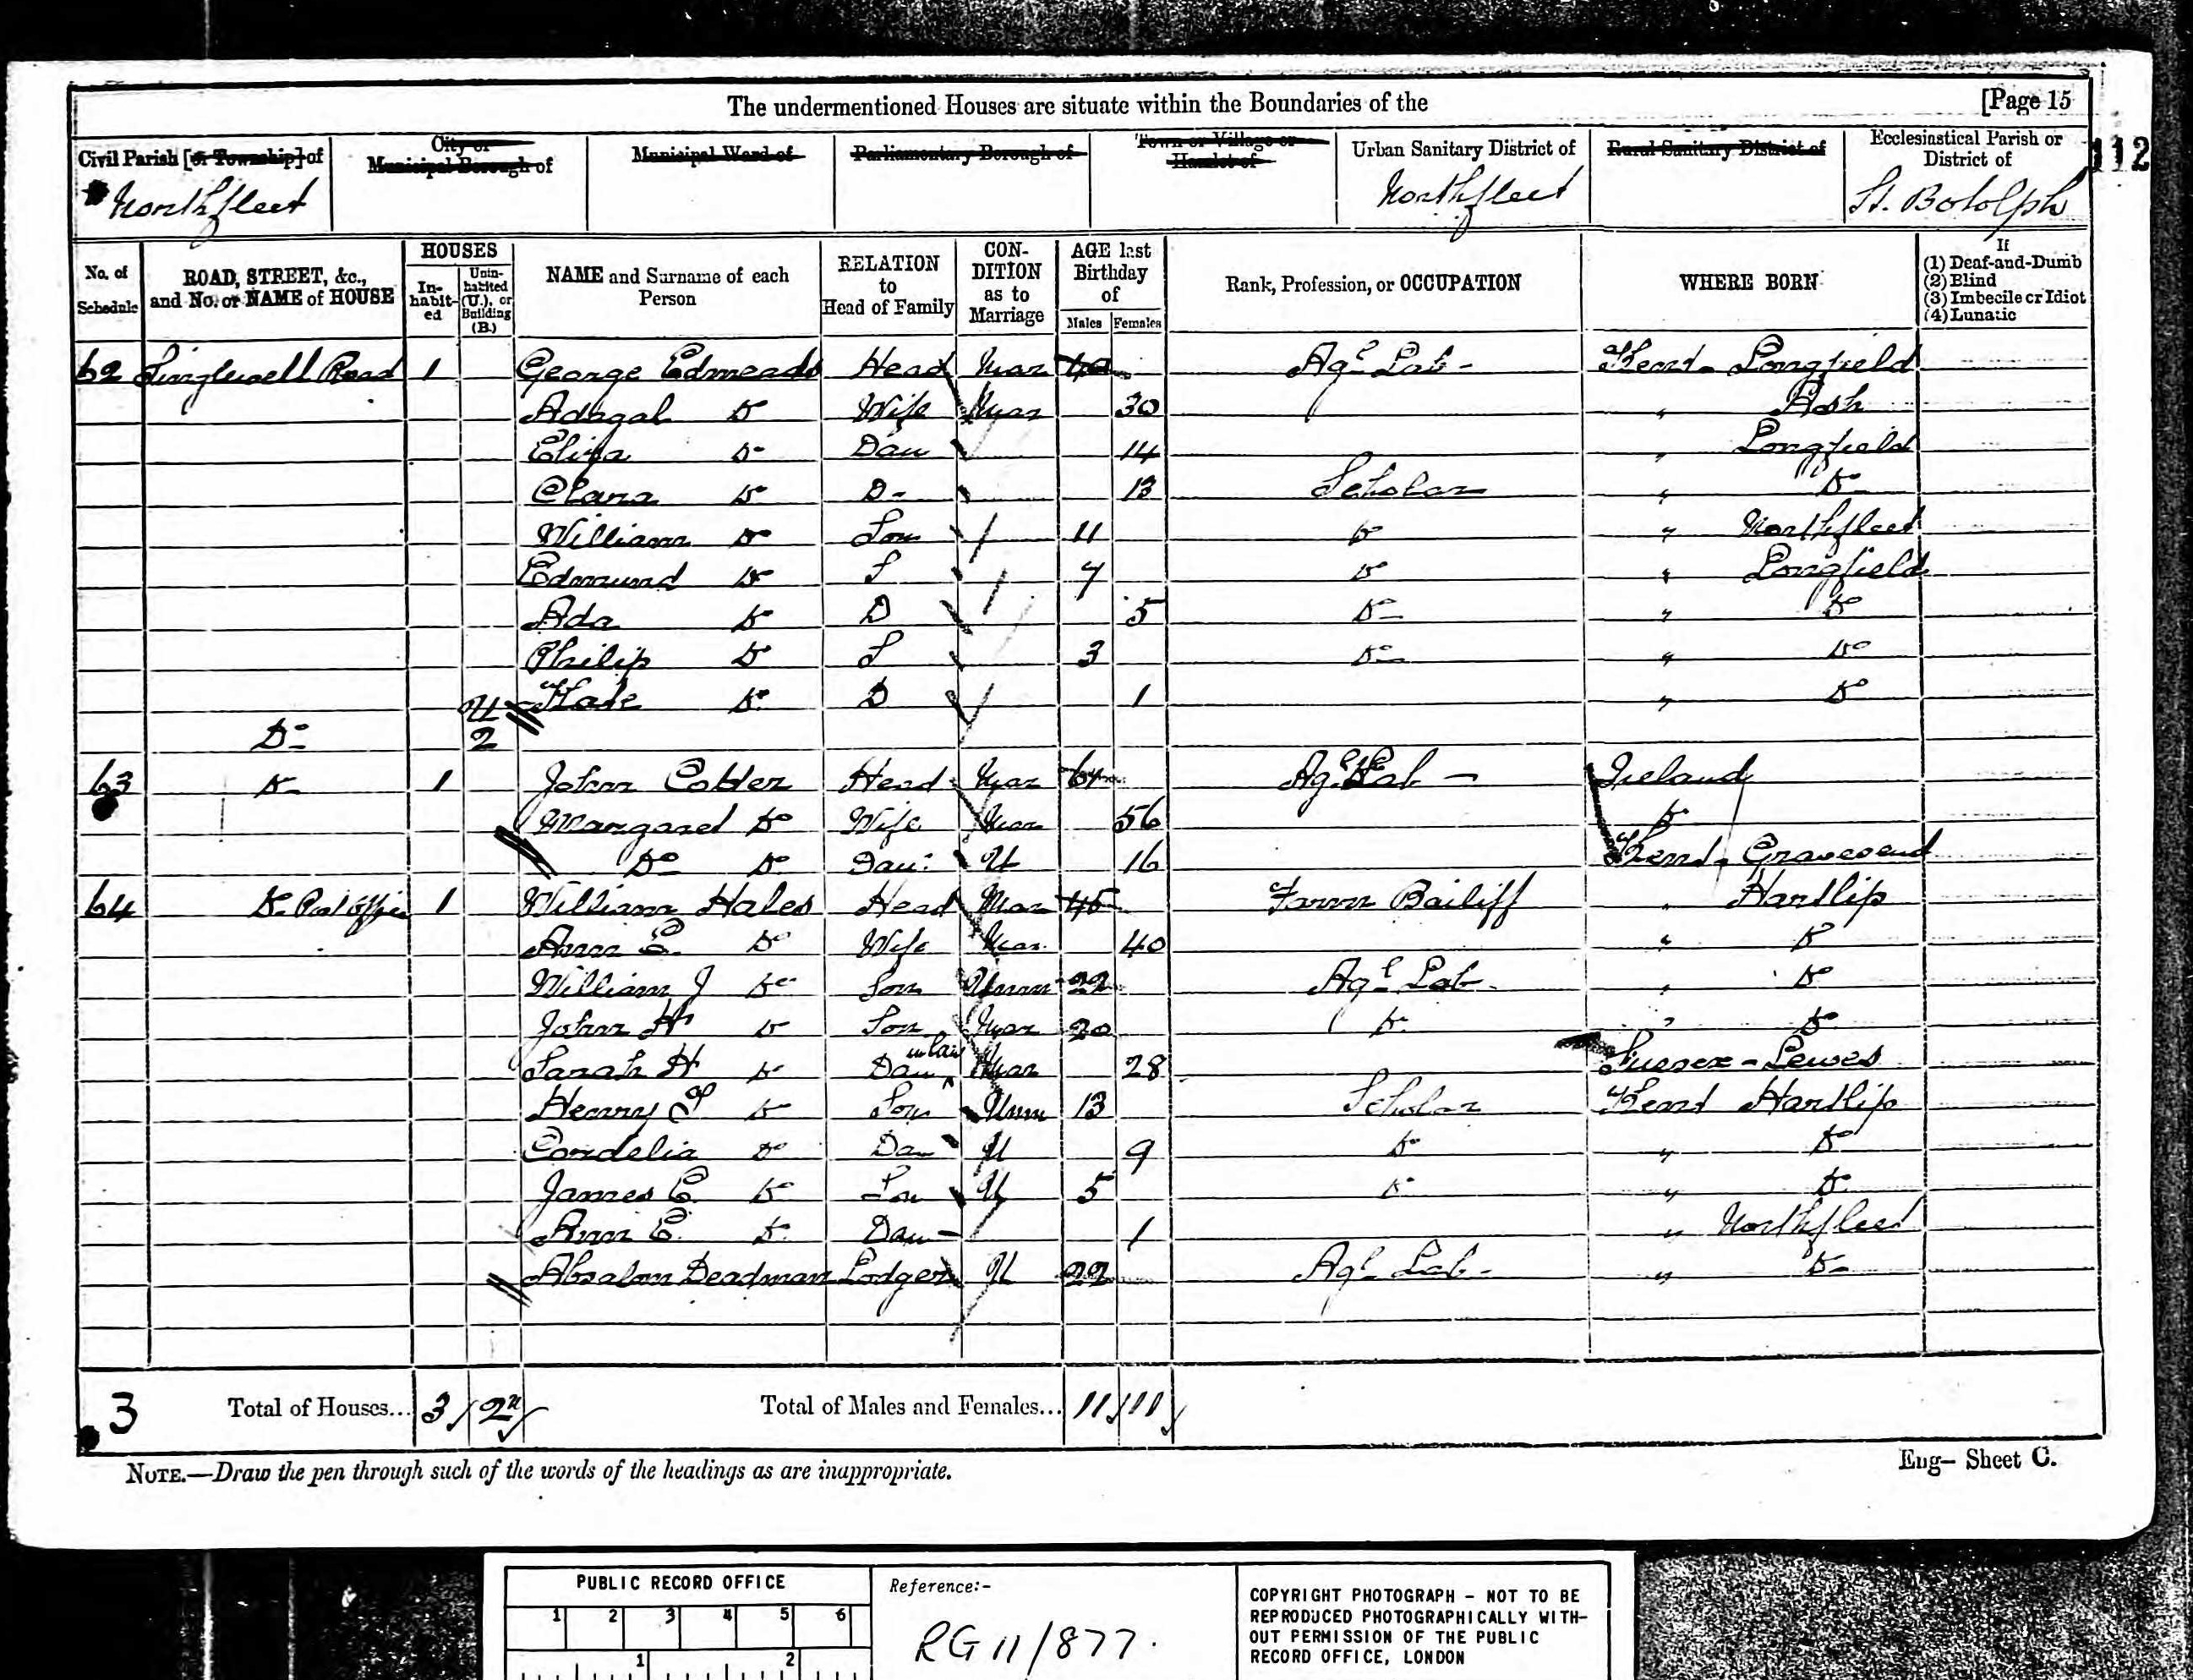 The undermentioned Houses are situate within the Boundaries of the [Page 15
Civil Parish [or Township] of City or Municipal Borough of Municipal Ward of Parliamentary Borough of Town or Village or Hamlet of Urban Sanitary District of Rural Sanitary District of Ecclesiastical Parish or District of
112
Northfleet Northfleet St. Botolph
No. of Schedule ROAD, STREET, &c., and No. or NAME of HOUSE HOUSES Inhabited Uninhabited (U.), or Building (B.) NAME and Surname of each Person RELATION to Head of Family CONDITION as to Marriage AGE last Birthday of Males Females Rank, Profession, or OCCUPATION WHERE BORN If (1) Deaf-and-Dumb (2) Blind (3) Imbecile or Idiot (4) Lunatic
62 Singlewell Road 1 George Edmeads Head Mar 40 Agl Lab - Kent - Longfield
Do Wife Mar 30 " Ash
Eliza Do Dau 14 " Longfield
Clara Do D- 13 Scholar " Do
William Do Son 11 Do " Northfleet
Edmund Do S 7 Do " Longfield
Ada Do D 5 Do " Do
Philip Do S 3 Do " Do
Kate Do D 1 " Do
Do U 2
63 Do 1 John Head Mar Agl Lab - Ireland
Margaret Do Wife Mar 56 Do
Do Do Dau: U 16 Kent - Gravesend
64 Do Post Office 1 William Hales Head Mar 45 Farm Bailiff " Hartlip
Ann E. Do Wife Mar 40 " Do
William J Do Son Unm 22 Agl Lab - " Do
John H Do Son Mar 20 Do " Do
Sarah H Do Dau in law Mar 28 Sussex - Lewes
Henry Do Son Unm 13 Scholar Kent Hartlip
Cordelia Do Dau U 9 Do " Do
James E. Do Son U 5 Do " Do
Ann E. Do Dau 1 " Northfleet
Absalom Deadman Lodger U 22 Agl Lab - " Do
3 Total of Houses... 3 2u Total of Males and Females... 11 11
NOTE.—Draw the pen through such of the words of the headings as are inappropriate.
Eng— Sheet C.
PUBLIC RECORD OFFICE
1 2 3 4 5 6
1 2
Reference:-
RG 11/877.
COPYRIGHT PHOTOGRAPH – NOT TO BE
REPRODUCED PHOTOGRAPHICALLY WITH-
OUT PERMISSION OF THE PUBLIC
RECORD OFFICE, LONDON